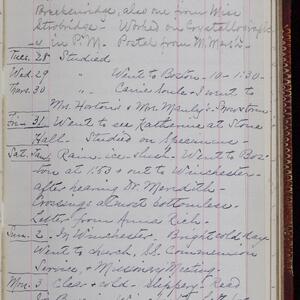 Breckenridge, also one from Miss
Strobridge - Worked on Crystallography
in P.M. Postal from M.
Tues. 28 Studied
Wed. 29 " Went to Boston - 10 - 1:30 -
Thurs. 30 " Carrie Soule & I went to
Mrs. Horton's & Mrs. Manly's.
Fri. 31. Went to see Katharine at Stone
Hall. Studied on Specimens -
Sat. Jan. 1 Rain, ice, slush - Went to Bos-
ton at 1:53 & out to Winchester -
after hearing Dr. Meredith -
Crossings almost bottomless
Letter from Anna Rich.
Sun. 2 In Winchester, Bright cold day
Went to church, S.S. Communion
Service, & Missionary Meeting.
Mon. 3 Clear & cold - Slippery - Read